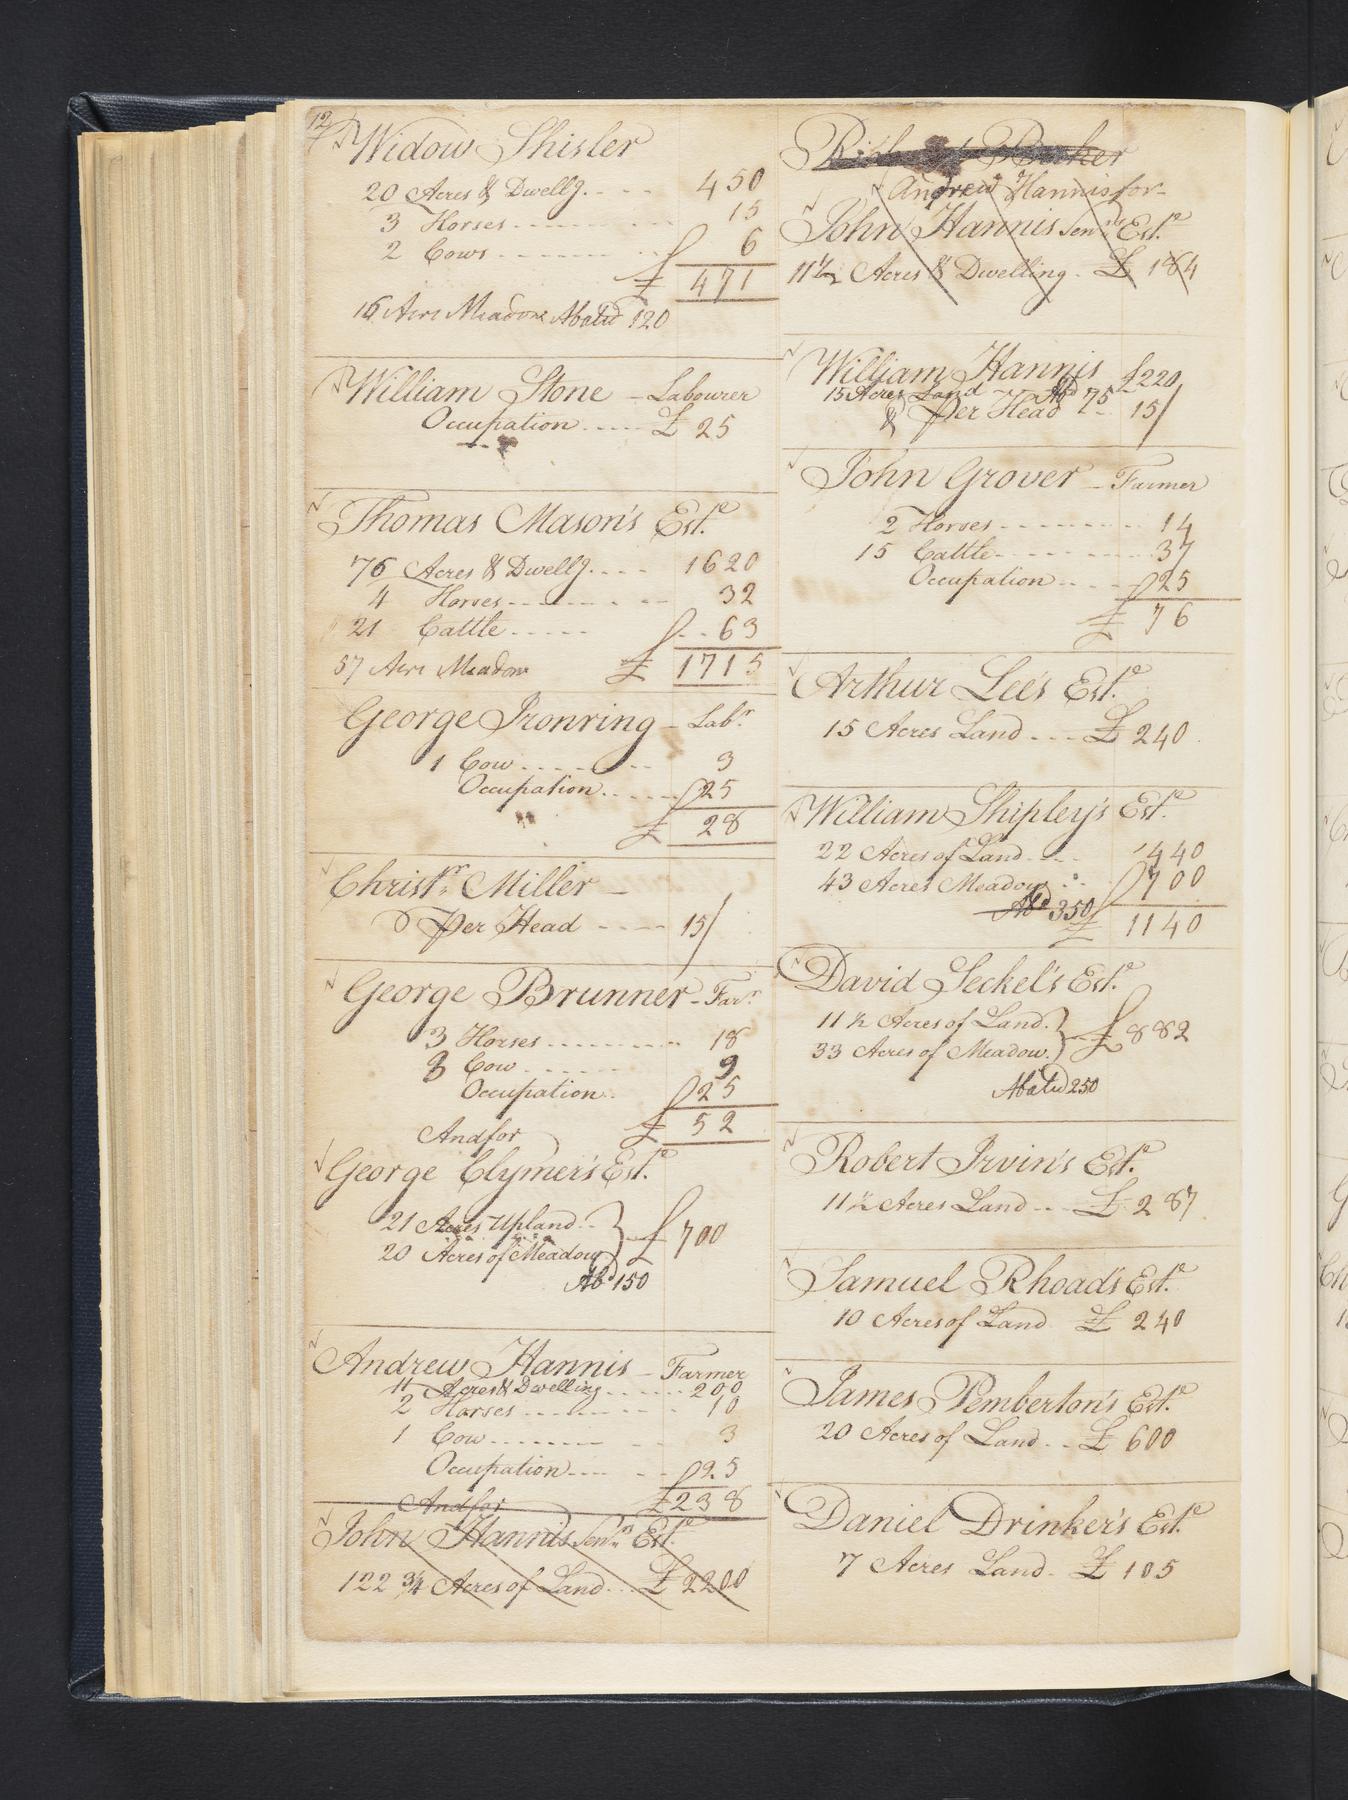 12
Widow Shisler
20 Acres & Dwellg. 450
3 Horses 15
2 Cows 6
£ 471
16 Acre Meadow Abated 120
William Stone - Labourer
Occupation £ 25
Thomas Mason's Este.
76 Acres & Dwellg. 1620
4 Horses 32
21 Cattle 63
57 Acre Meadow £ 1715
George Ironring - Labr.
1 Cow 3
Occupation 25
£ 28
Christr. Miller -
Per Head 15/
George Brunner - Farr.
3 Horses 18
3 Cow 9
Occupation 25
£ 52
And for
George Clymer's Este.
21 Acres Upland
20 Acres of Meadow } £ 700
Abd 150
Andrew Hannis - Farmer
11 Acres & Dwelling 200
2 Horses 10
1 Cow 3
Occupation 25
£ 238
And for
John Hannis Senr. Este.
122 3/4 Acres of Land £ 2200
Barker
Andrew Hannis for
John Hannis Senr. Este.
11 1/2 Acres & Dwelling £ 184
William Hannis £220
15 Acres Land Abd 75
& Per Head 15/
John Grover - Farmer
2 Horses 14
15 Cattle 37
Occupation 25
£ 76
Arthur Lee's Este.
15 Acres Land £ 240
William Shipley's Este.
22 Acres of Land 440
43 Acres Meadow 700
Abd 350 £ 1140
David Seckel's Este.
11 1/2 Acres of Land
33 Acres of Meadow } £ 882
Abated 250
Robert Irvin's Este.
11 1/2 Acres Land £ 287
Samuel Rhoad's Este.
10 Acres of Land £ 240
James Pemberton's Este.
20 Acres of Land £ 600
Daniel Drinker's Este.
7 Acres Land £ 105